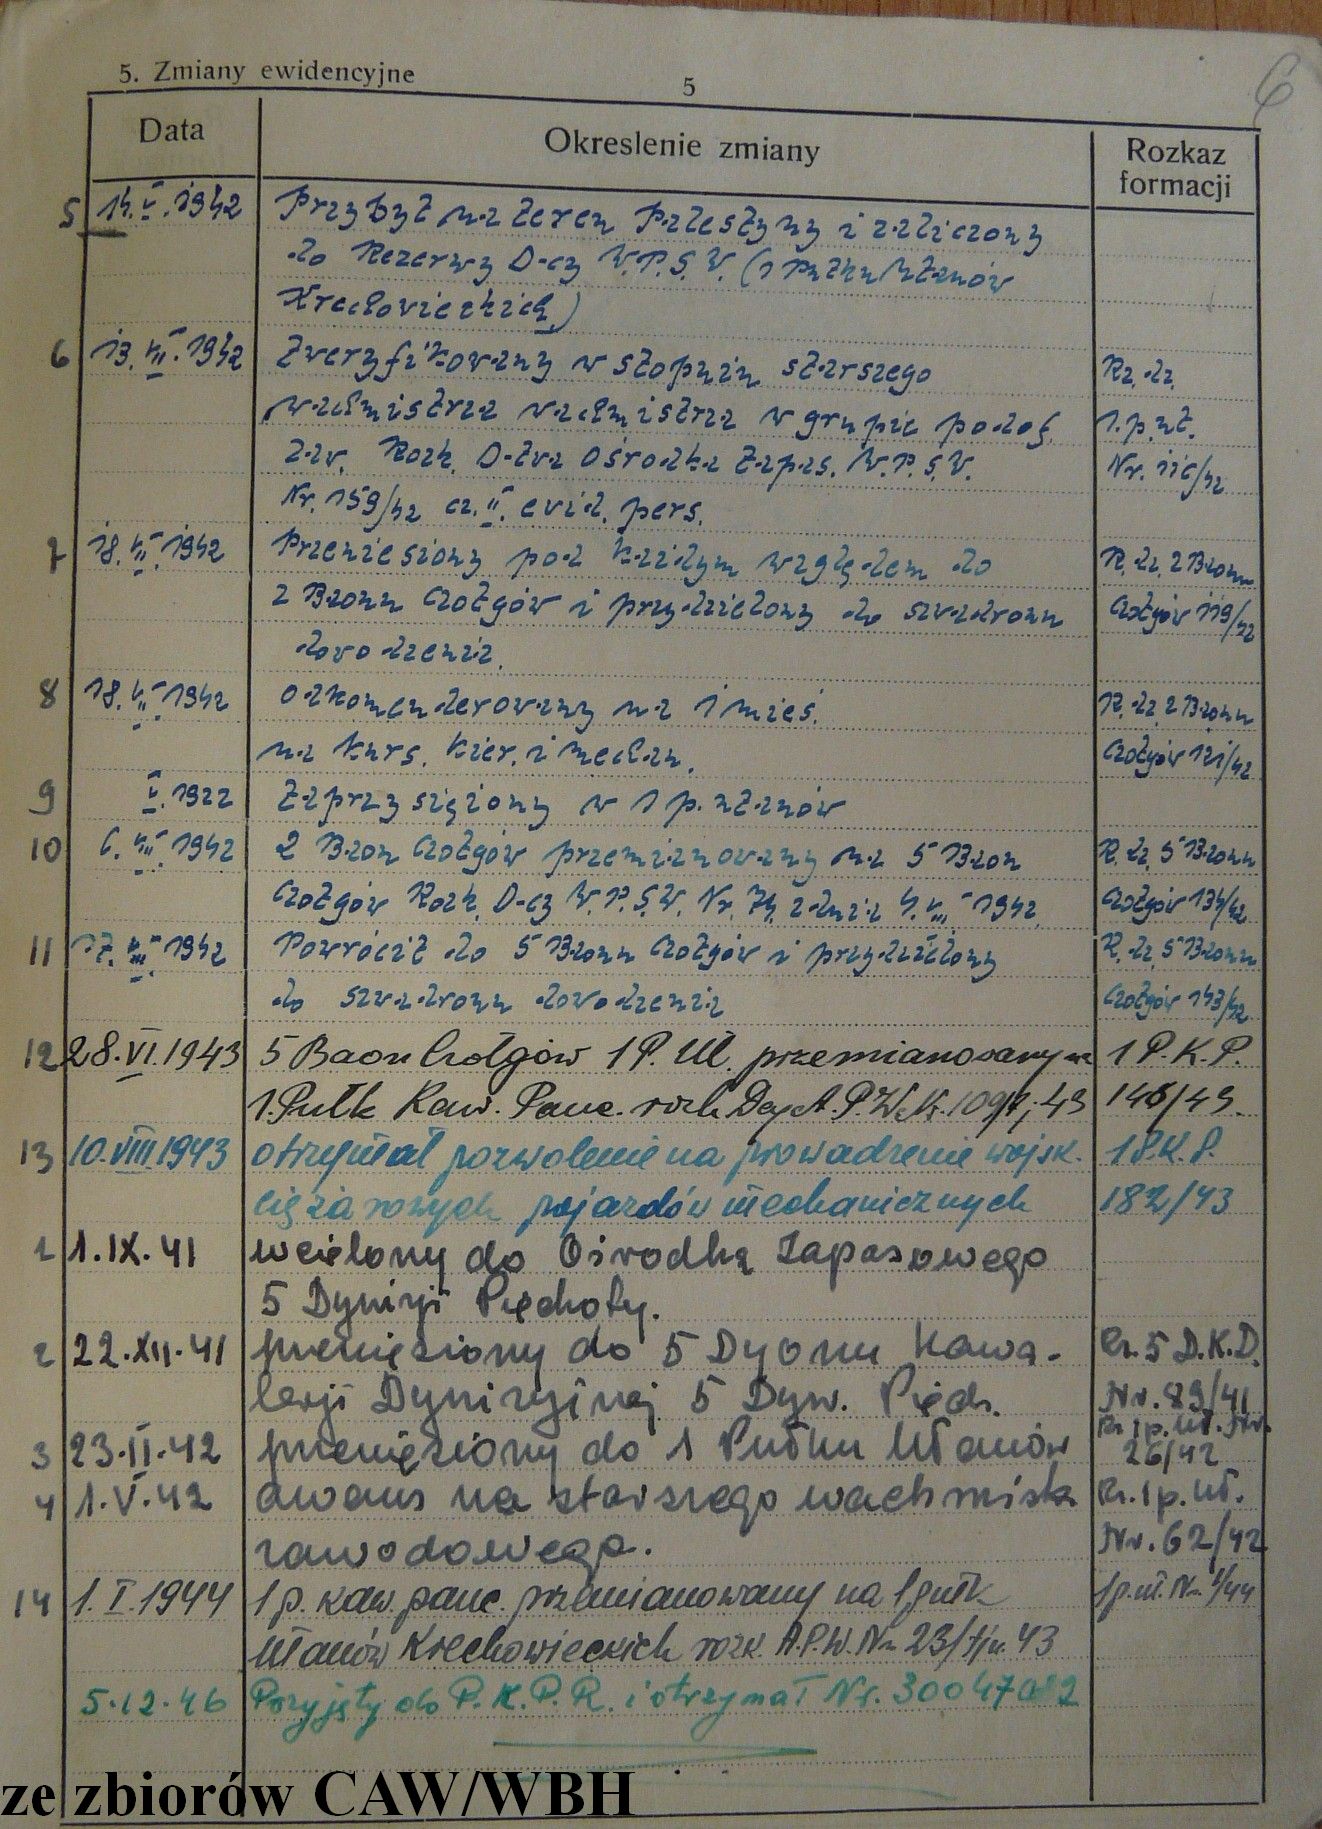 5. Zmiany ewidencyjne
5
6
Data Okreslenie zmiany Rozkaz formacji
5 14.V.1942 Przybył na teren Palestyny i zaliczony
do Rezerwy D-cy W.P.S.W. (1 Pułku Ułanów
Krechowieckich)
6 13.VII.1942 Zweryfikowany w stopniu starszego Rz. dz.
wachmistrza wachmistrza w grupie podof. 1.p.uł.
zaw. Rozk. D-twa Ośrodka Zapas. W.P.S.W. Nr. 116/42
Nr. 159/42 cz. II. ewid. pers.
7 18.VII.1942 Przeniesiony pod każdym względem do R. dz. 2 Baonu
2 Baonu Czołgów i przydzielony do szwadronu Czołgów 119/42
dowodzenia.
8 18.VII.1942 odkomenderowany na 1 mieś. R. dz. 2 Baonu
na kurs. kier. i mechan. Czołgów 121/42
9 V.1922 Zaprzysiężony w 1 p. ułanów
10 6.VIII.1942 2 Baon Czołgów przemianowany na 5 Baon R. dz. 5 Baonu
Czołgów Rozk. D-cy W.P.S.W. Nr. 74. z dnia 4.VIII 1942. Czołgów 134/42
11 17.VIII.1942 Powrócił do 5 Baonu Czołgów i przydzielony R. dz. 5 Baonu
do szwadronu dowodzenia Czołgów 143/42
12 28.VI.1943 5 Baon Czołgów 1 P. Uł. przemianowany na 1 P.K.P.
1.Pułk Kaw. Panc. rozk Dcy A.P.W. Nr. 146/43.
13 10.VIII.1943 otrzymał pozwolenie na prowadzenie wojsk. 1 P.K.P.
ciężarowych pojazdów mechanicznych 182/43
1 1.IX.41 wcielony do Ośrodka Zapasowego
5 Dywizji Piechoty.
2 22.XII.41 przeniesiony do 5 Dyonu Kawa- Rz. 5 D.K.D.
lerji Dywizyjnej 5 Dyw. Piech. Nr. 89/41
3 23.II.42 przeniesiony do 1 Pułku Ułanów Rz. 1 p. uł. Nr. 26/42
4 1.V.42 awans na starszego wachmistrza Rz. 1 p. uł.
zawodowego. Nr. 62/42
14 1.I.1944 1 p. kaw. panc. przemianowany na 1 pułk 1 p. uł. Nr. 1/44
Ułanów Krechowieckich rozk. A.P.W. Nr 23/ 43
5.12.46 Przyjęty do P.K.P.R. i otrzymał Nr. 30047082
ze zbiorów CAW/WBH